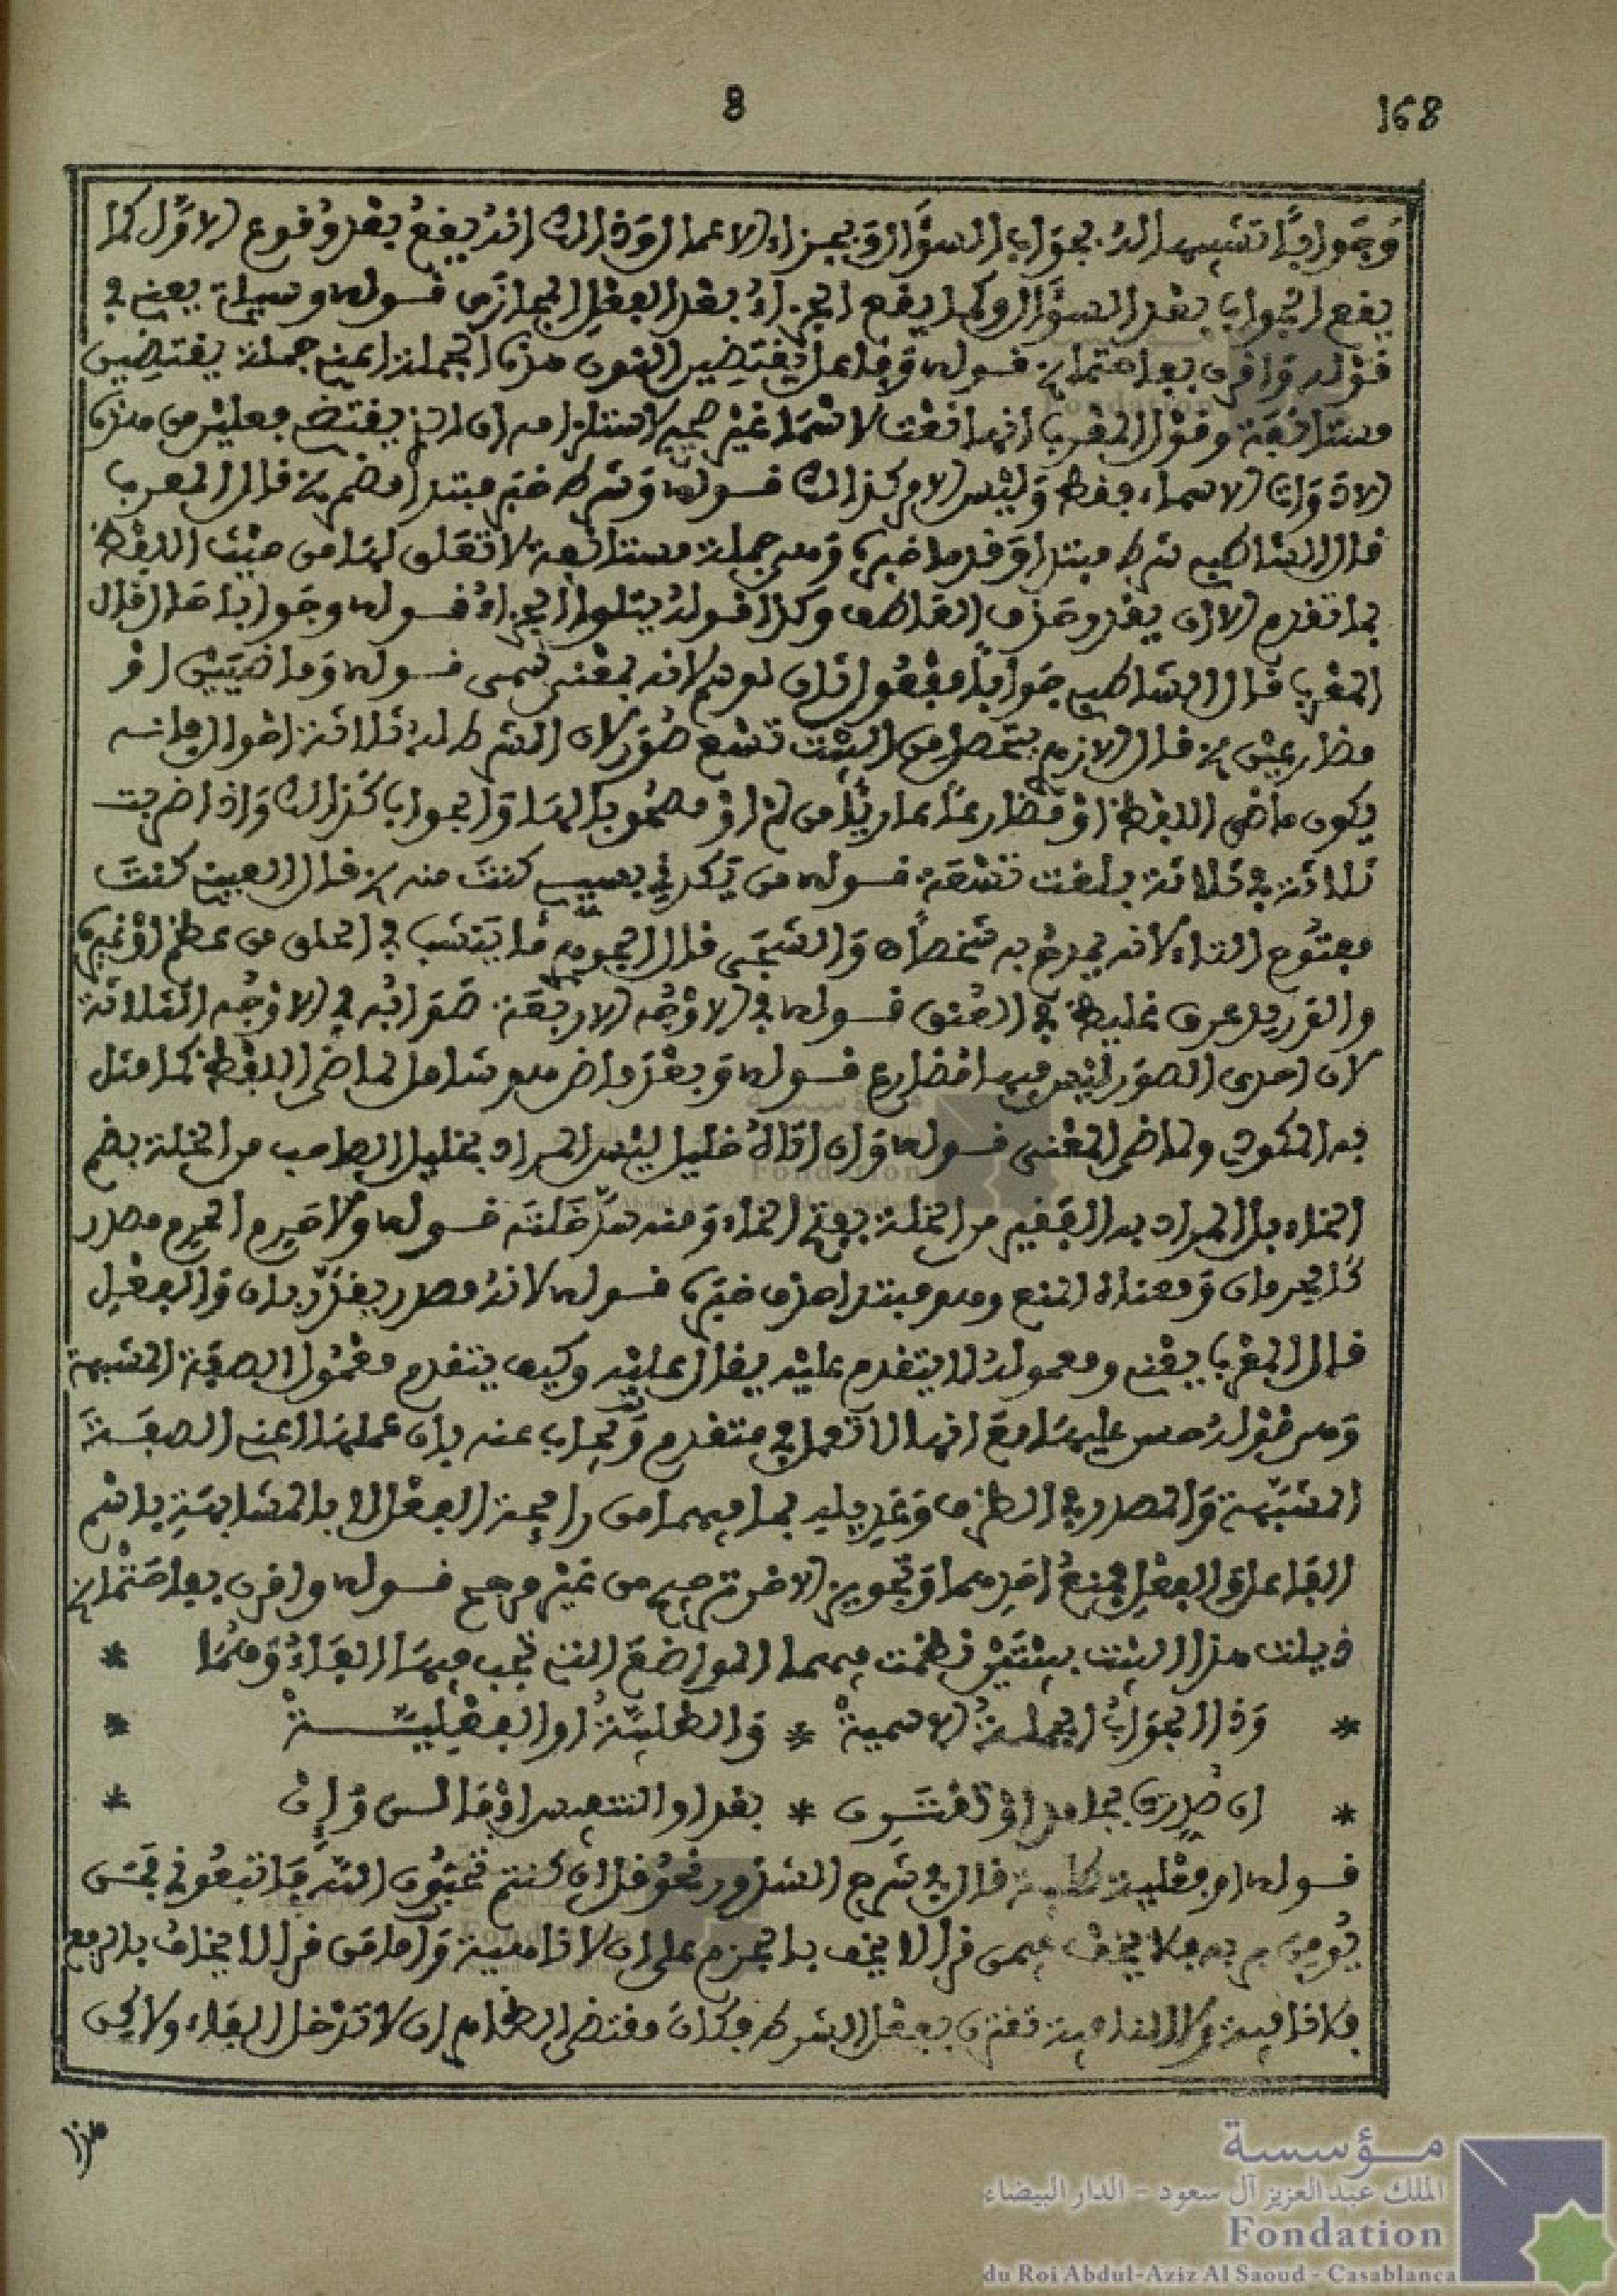 8
168
وجوابا تشبيها له بجواب السؤال وبجزاء الاعمال وذالك انه يقع بعد وقوع الاول كما
يقع الجواب بعد السؤال وكما يقع الجزاء بعد الفعل المجازى قوله وسياتي يعني في
قوله واقرن بفا حتما الخ قوله وفاعل يقتضين النون هذه الجملة اعني جملة يقتضين
مستانفة وقول المعرب انها نعت لاسما غير صحيح لاستلزامه ان الذي يقتضي فعلين من هذه
الادوات الاسماء فقط وليس الامر كذالك قوله وشرط خبر مبتدا مضمر الخ قال المعرب
قال الشاطبي شرط مبتدا وقدما خبره وهي جملة مستانفة لا تعلق لها من حيث اللفظ
بما تقدم الا ان يقدر حذف العاطف وكذا قوله يتلوا الجزاء قوله وجوابا حال قال
المعرب قال الشاطبي جوابا مفعول ثان لوسم لانه بمعنى سمي قوله وماضيين او
مضارعين الخ قال الازهري يتحصل من البيت تسع صور لان الشرط له ثلاثة احوال فانه
يكون ماضي اللفظ او مضارعا عاريا من لم او مصحوبا لها والجواب كذالك واذا ضربت
ثلاثة في ثلاثة بلغت تسعة قوله من يكدني بسيء كنت منه الخ قال العيني كنت
مفتوح التاء لانه يمدح به شخصا والشجى قال الجوهري ما ينشب في الحلق من عظم او غيره
والوريد عرق غليظ في العنق قوله في الاوجه الاربعة صوابه في الاوجه الثلاثة
لان احدى الصور ليس فيها مضارع قوله وبعد ماض هو شامل لماضي اللفظ كما مثل
به المكودي ولماضي المعنى قوله وان اتاه خليل ليس المراد بخليل الصاحب من الخلة بضم
الخاء بل المراد به الفقير من الخلة بفتح الخاء ومنه سد خلته قوله ولا حرم الحرم مصدر
كالحرمان ومعناه المنع وهو مبتدا حذف خبره قوله لانه مصدر يقدر بان والفعل
قال المعرب يعني ومعموله لا يتقدم عليه يقال عليه وكيف يتقدم معمول الصفة المشبهة
وهي قوله حسن عليها مع انها لا تعمل في متقدم ويجاب عنه بان عملها اعني الصفة
المشبهة والمصدر في الظرف وعديله بما فيهما من رايحة الفعل لا بالمشابهة باسم
الفاعل والفعل فمنع احدهما وتجويز الاخر ترجيح من غير مرجح قوله واقرن بفا حتما الخ
ذيلت هذا البيت ببيتين نظمت فيهما المواضع التي تجب فيها الفاء وهما *
* وذا الجواب الجملة الاسمية * والطلبية او الفعلية *
* ان صدرت بجامد او تقترن * بقد او التنفيس او ما لن وان *
قوله او فعلية طلبية قال في شرح الشذور نحو قل ان كنتم تحبون الله فاتبعوني فمن
يومن بربه فلا يخف فيمن قرا لا يخف بالجزم على ان لا ناهية واما من قرا لا يخاف بالرفع
فلا نافية ولا النافية تقترن بفعل الشرط فكان مقتضى الظاهر ان لا تدخل الفاء ولاكن
هذا
مؤسسة
الملك عبد العزيز آل سعود - الدار البيضاء
Fondation
du Roi Abdul-Aziz Al Saoud - Casablanca